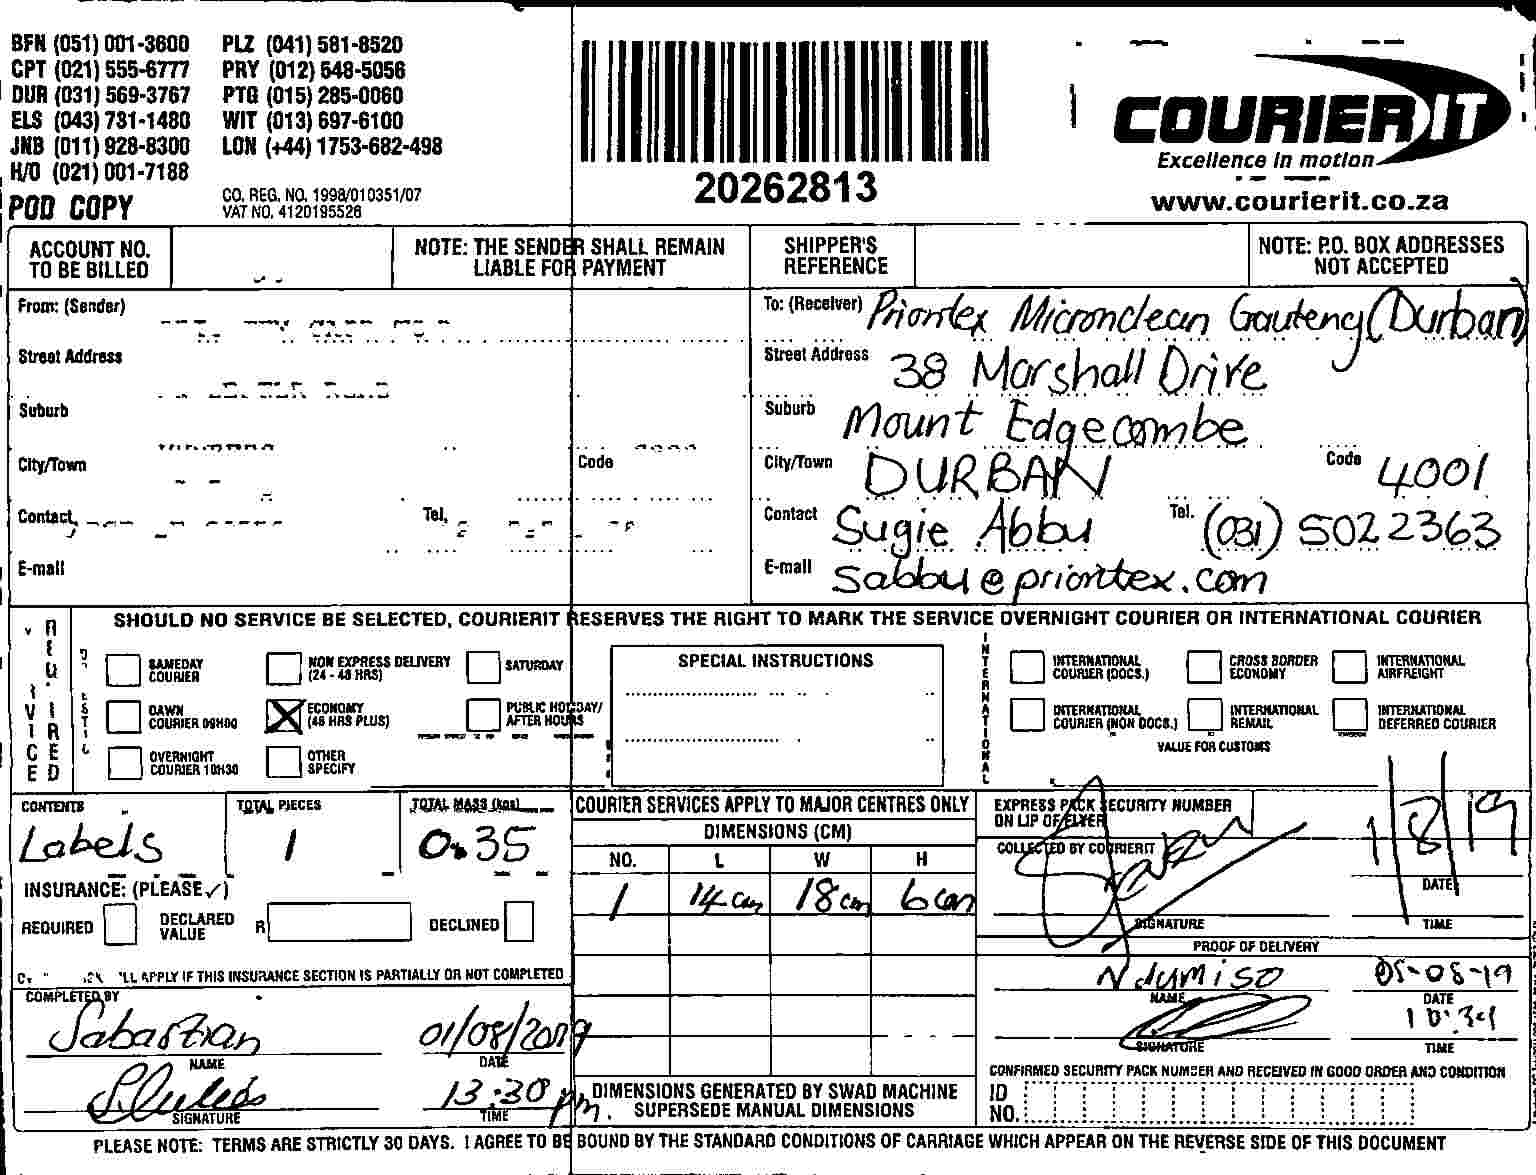 BFN (051) 001-3600 PLZ (041) 581-8520
CPT (021) 555-6777 PRY (012) 548-5056
DUR (031) 569-3767 PTG (015) 285-0060
ELS (043) 731-1480 WIT (013) 697-6100
JNB (011) 928-8300 LON (+44) 1753-682-498
H/O (021) 001-7188
POD COPY
CO. REG. NO. 1998/010351/07
VAT NO. 4120195526
20262813
COURIER IT
Excellence in motion
www.courierit.co.za
ACCOUNT NO.
TO BE BILLED
NOTE: THE SENDER SHALL REMAIN
LIABLE FOR PAYMENT
SHIPPER'S
REFERENCE
NOTE: P.O. BOX ADDRESSES
NOT ACCEPTED
From: (Sender)
Street Address
Suburb
City/Town Code
Contact Tel.
E-mail
To: (Receiver) Priontex Micronclean Gauteng (Durban)
Street Address 38 Marshall Drive
Suburb Mount Edgecombe
City/Town DURBAN Code 4001
Contact Sugie Abbu Tel. (031) 5022363
E-mail sabbu@priontex.com
SHOULD NO SERVICE BE SELECTED, COURIERIT RESERVES THE RIGHT TO MARK THE SERVICE OVERNIGHT COURIER OR INTERNATIONAL COURIER
SAMEDAY
COURIER
NON EXPRESS DELIVERY
(24 - 48 HRS)
SATURDAY
DAWN
COURIER 09H00
ECONOMY
(48 HRS PLUS)
PUBLIC HOLIDAY/
AFTER HOURS
OVERNIGHT
COURIER 10H30
OTHER
SPECIFY
SPECIAL INSTRUCTIONS
INTERNATIONAL
INTERNATIONAL
COURIER (DOCS.)
CROSS BORDER
ECONOMY
INTERNATIONAL
AIRFREIGHT
INTERNATIONAL
COURIER (NON DOCS.)
INTERNATIONAL
REMAIL
INTERNATIONAL
DEFERRED COURIER
VALUE FOR CUSTOMS
CONTENTS TOTAL PIECES TOTAL MASS (kgs)
Labels 1 0.35
INSURANCE: (PLEASE ✓)
REQUIRED DECLARED
VALUE R DECLINED
LL APPLY IF THIS INSURANCE SECTION IS PARTIALLY OR NOT COMPLETED
COMPLETED BY
Sabastian 01/08/2019
NAME DATE
13:30 pm.
SIGNATURE TIME
COURIER SERVICES APPLY TO MAJOR CENTRES ONLY
DIMENSIONS (CM)
NO. L W H
1 14cm 18cm 6cm
DIMENSIONS GENERATED BY SWAD MACHINE
SUPERSEDE MANUAL DIMENSIONS
EXPRESS PACK SECURITY NUMBER
ON LIP OF FLYER
COLLECTED BY COURIERIT
1/8/19
DATE
SIGNATURE TIME
PROOF OF DELIVERY
Ndumiso 05-08-19
NAME DATE
10:34
SIGNATURE TIME
CONFIRMED SECURITY PACK NUMBER AND RECEIVED IN GOOD ORDER AND CONDITION
ID
NO.
PLEASE NOTE: TERMS ARE STRICTLY 30 DAYS. I AGREE TO BE BOUND BY THE STANDARD CONDITIONS OF CARRIAGE WHICH APPEAR ON THE REVERSE SIDE OF THIS DOCUMENT